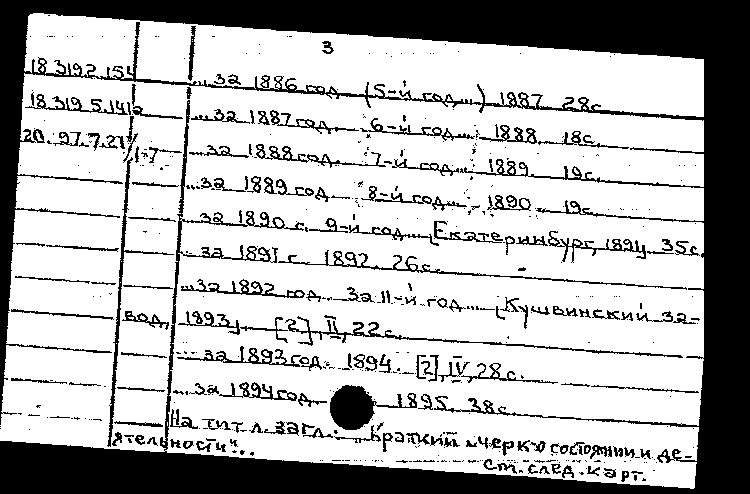 3
18.319.2.154 ...за 1886 год (5-й год...) 1887 28с.
18.319.5.141а ...за 1887 год. 6-й год... 1888. 18с.
20.97.7.21/1-7 ...за 1888 год. 7-й год... 1889. 19с.
...за 1889 год 8-й год... 1890. 19с.
за 1890 г. 9-й год... [Екатеринбург, 1891]. 35с.
...за 1891 г. 1892. 26с.
...за 1892 год. За 11-й год... [Кушвинский за-
вод, 1893]. [2], II, 22с.
...за 1893 год. 1894. [2], IV, 28с.
...за 1894 год. 1895. 38с.
На тит. л. загл.: „Краткий очерк о состоянии и де-
ятельности"...
См. след. карт.